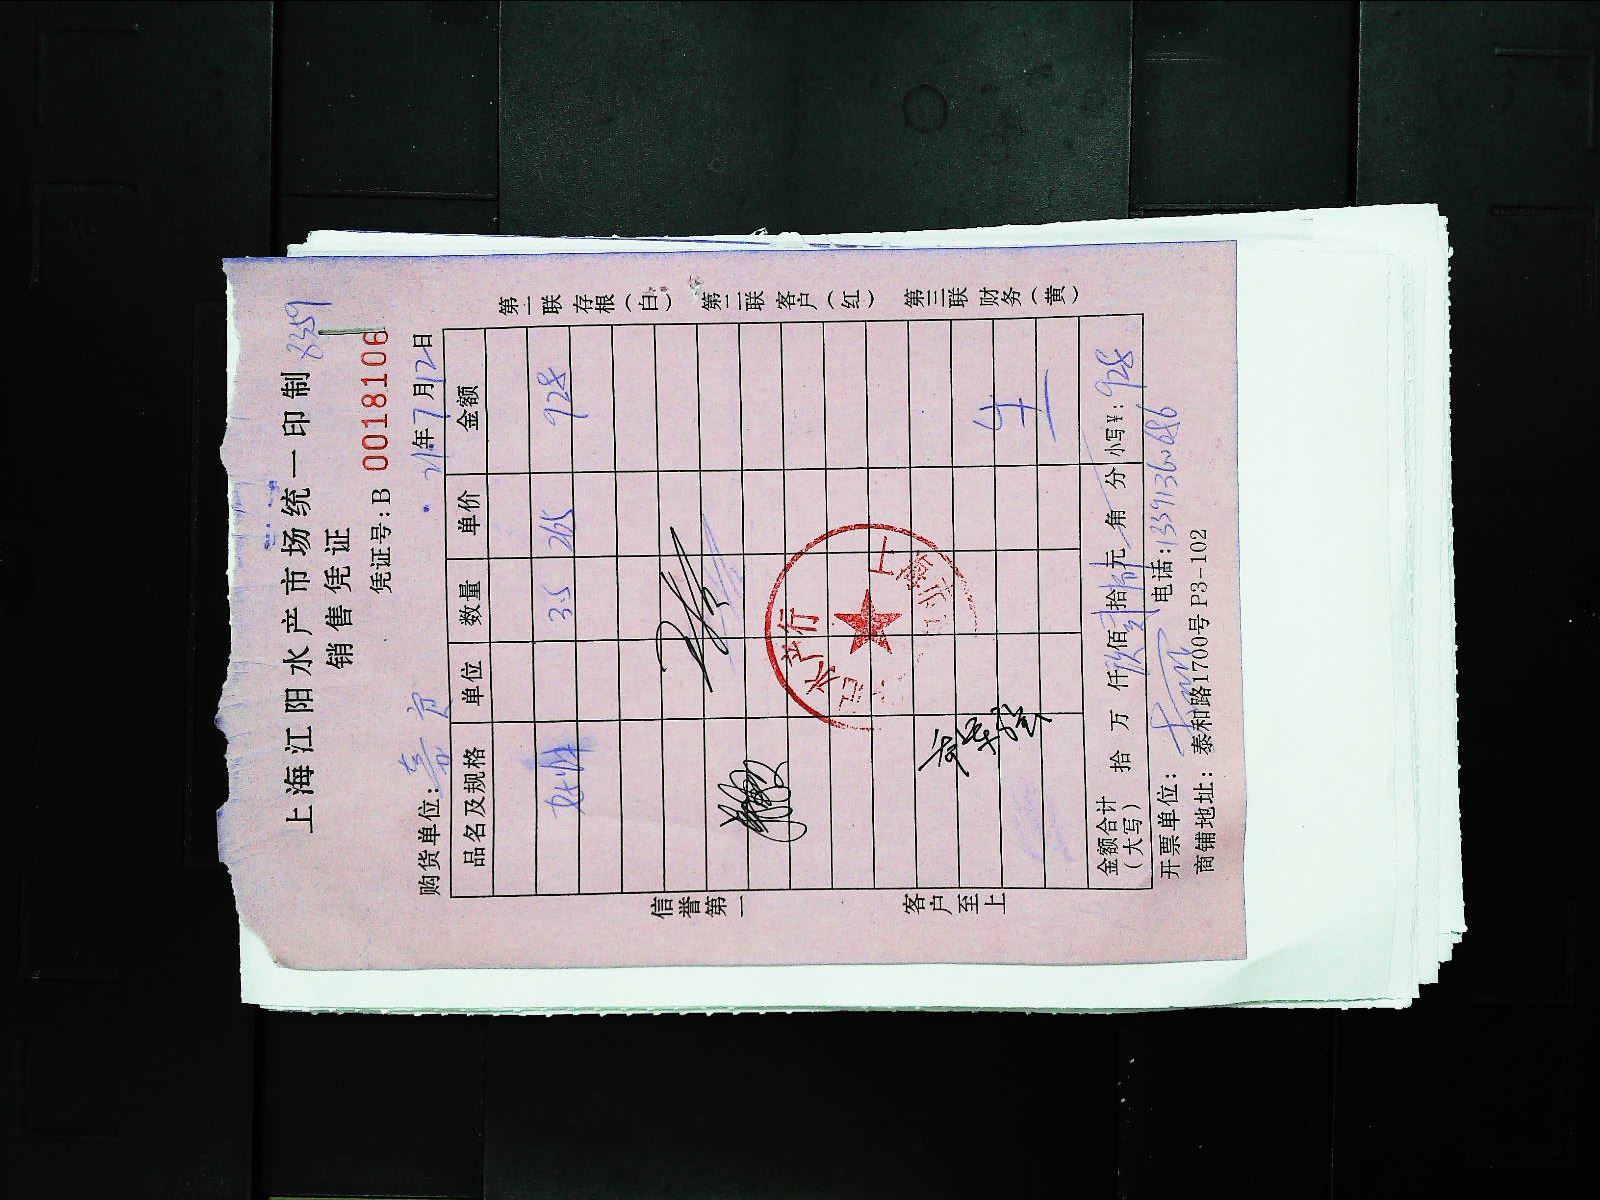 上海江阳水产市场统一印制 8359
销售凭证
凭证号:B 0018106
购货单位: 21年7月12日
品名及规格 单位 数量 单价 金额
3.5 265 928
信誉第一
客户至上
第一联 存根（白） 第二联 客户（红） 第三联 财务（黄）
水产行
上海
金额合计（大写） 拾 万 仟 玖佰 贰拾 捌元 角 分 小写¥: 928
开票单位: 电话: 13391360686
商铺地址: 泰和路1700号P3-102